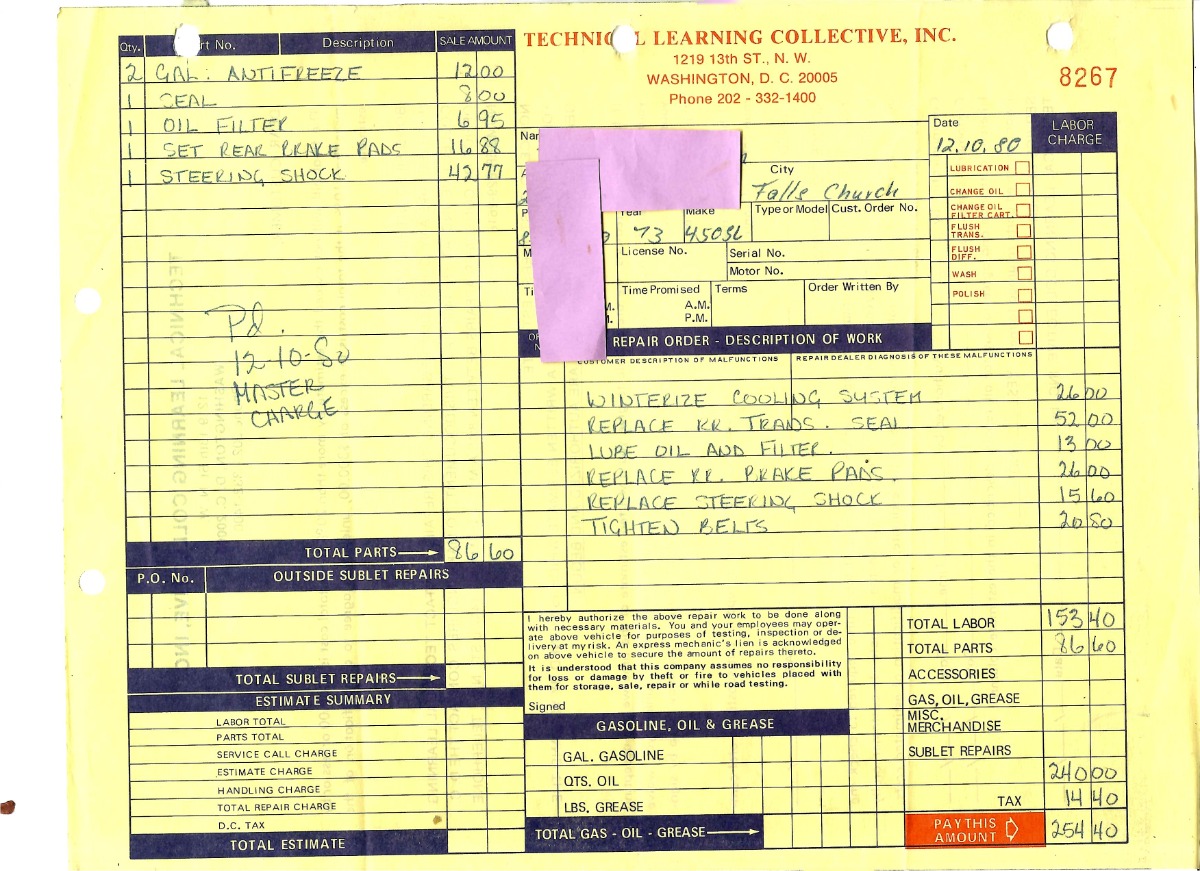 TECHNICAL LEARNING COLLECTIVE, INC.
1219 13th ST., N. W.
WASHINGTON, D. C. 20005
Phone 202 - 332-1400
8267
Qty. Part No. Description SALE AMOUNT
2 GAL. ANTIFREEZE 12 00
1 SEAL 8 00
1 OIL FILTER 6 95
1 SET REAR BRAKE PADS 16 88
1 STEERING SHOCK 42 77
Pd.
12-10-80
MASTER
CHARGE
TOTAL PARTS 86 60
P.O. No. OUTSIDE SUBLET REPAIRS
TOTAL SUBLET REPAIRS
ESTIMATE SUMMARY
LABOR TOTAL
PARTS TOTAL
SERVICE CALL CHARGE
ESTIMATE CHARGE
HANDLING CHARGE
TOTAL REPAIR CHARGE
D.C. TAX
TOTAL ESTIMATE
Date
12.10.80
LABOR CHARGE
City
Falls Church
Year Make Type or Model Cust. Order No.
73 450SL
License No. Serial No.
Motor No.
Time Promised Terms Order Written By
A.M.
P.M.
LUBRICATION
CHANGE OIL
CHANGE OIL
FILTER CART.
FLUSH
TRANS.
FLUSH
DIFF.
WASH
POLISH
REPAIR ORDER - DESCRIPTION OF WORK
CUSTOMER DESCRIPTION OF MALFUNCTIONS REPAIR DEALER DIAGNOSIS OF THESE MALFUNCTIONS
WINTERIZE COOLING SYSTEM 26 00
REPLACE RR. TRANS. SEAL 52 00
LUBE OIL AND FILTER. 13 00
REPLACE RR. BRAKE PADS. 26 00
REPLACE STEERING SHOCK 15 60
TIGHTEN BELTS 20 80
I hereby authorize the above repair work to be done along
with necessary materials. You and your employees may oper-
ate above vehicle for purposes of testing, inspection or de-
livery at my risk. An express mechanic's lien is acknowledged
on above vehicle to secure the amount of repairs thereto.
It is understood that this company assumes no responsibility
for loss or damage by theft or fire to vehicles placed with
them for storage, sale, repair or while road testing.
Signed
GASOLINE, OIL & GREASE
GAL. GASOLINE
QTS. OIL
LBS. GREASE
TOTAL GAS - OIL - GREASE
TOTAL LABOR 153 40
TOTAL PARTS 86 60
ACCESSORIES
GAS, OIL, GREASE
MISC.
MERCHANDISE
SUBLET REPAIRS
240 00
TAX 14 40
PAY THIS
AMOUNT 254 40